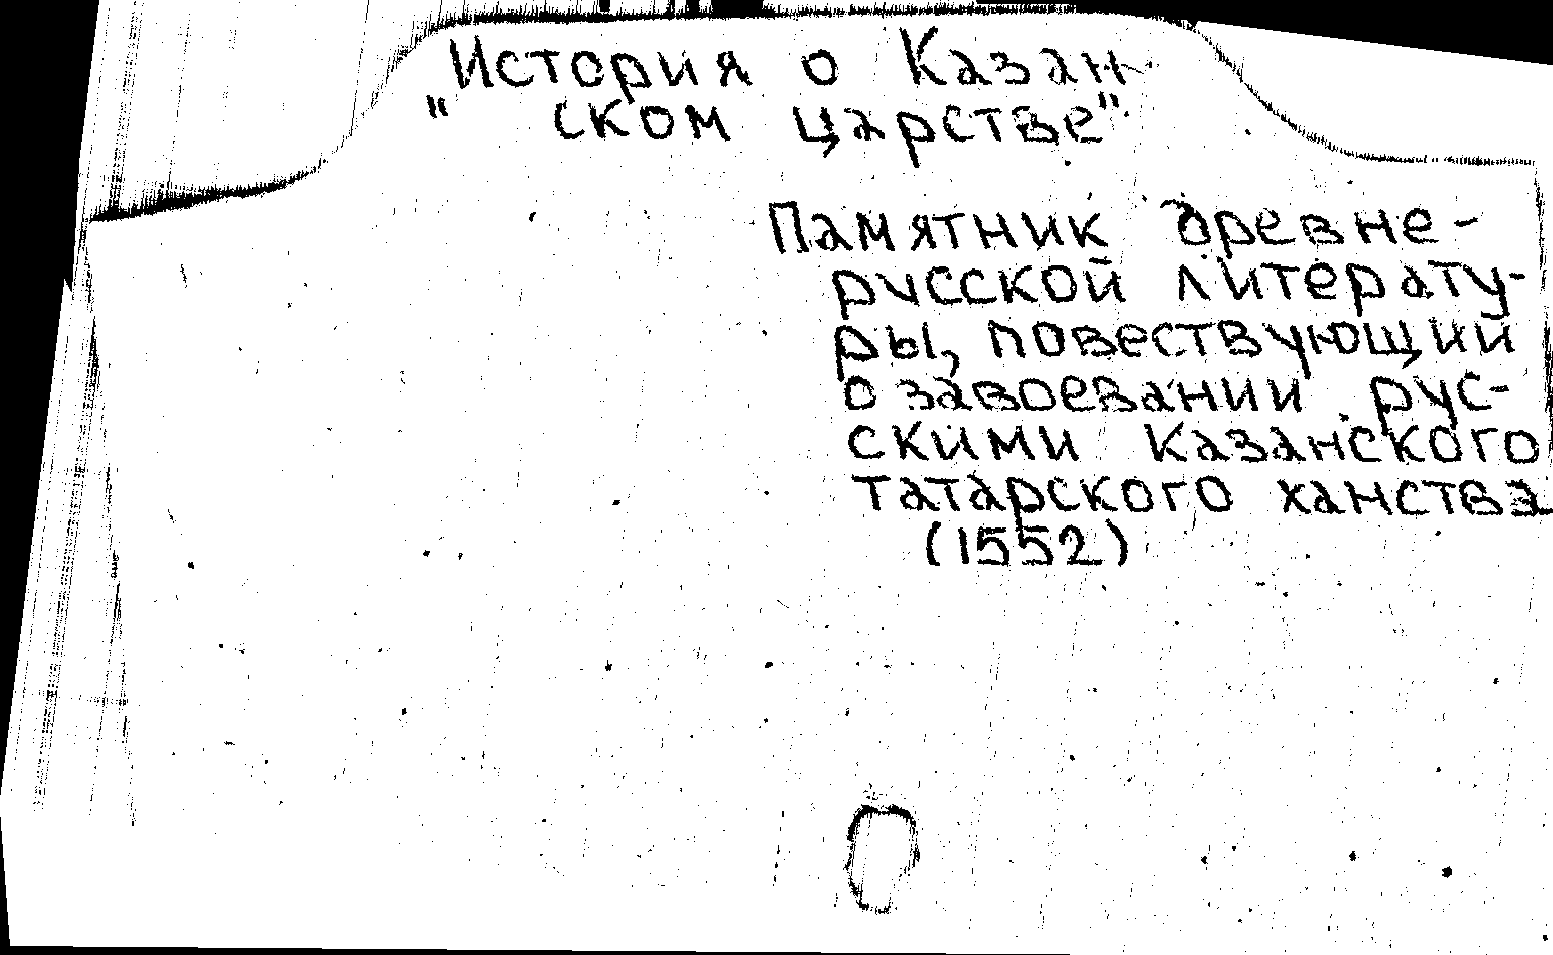 "История о Казан
ском царстве"
Памятник древне-
русской литерату-
ры, повествующий
о завоевании рус-
скими Казанского
татарского ханства
(1552)